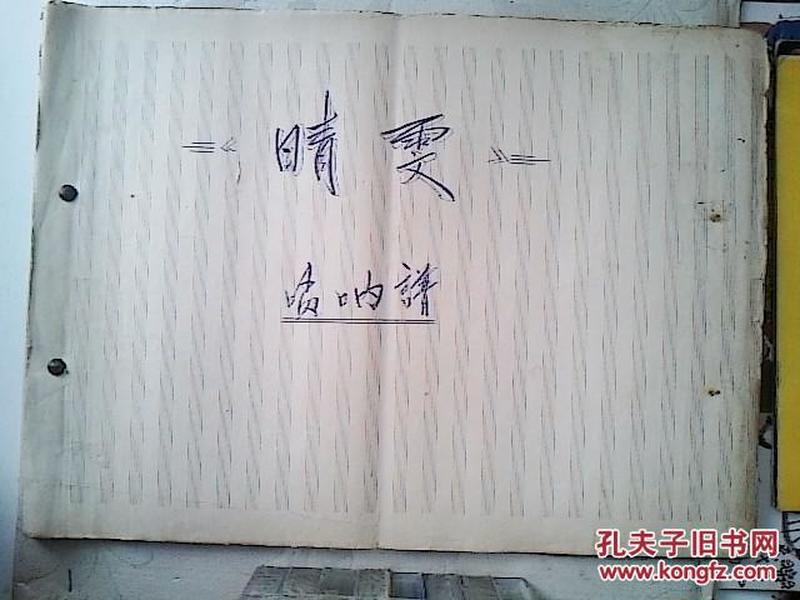 《晴雯》
唢呐譜
孔夫子旧书网
www.kongfz.com